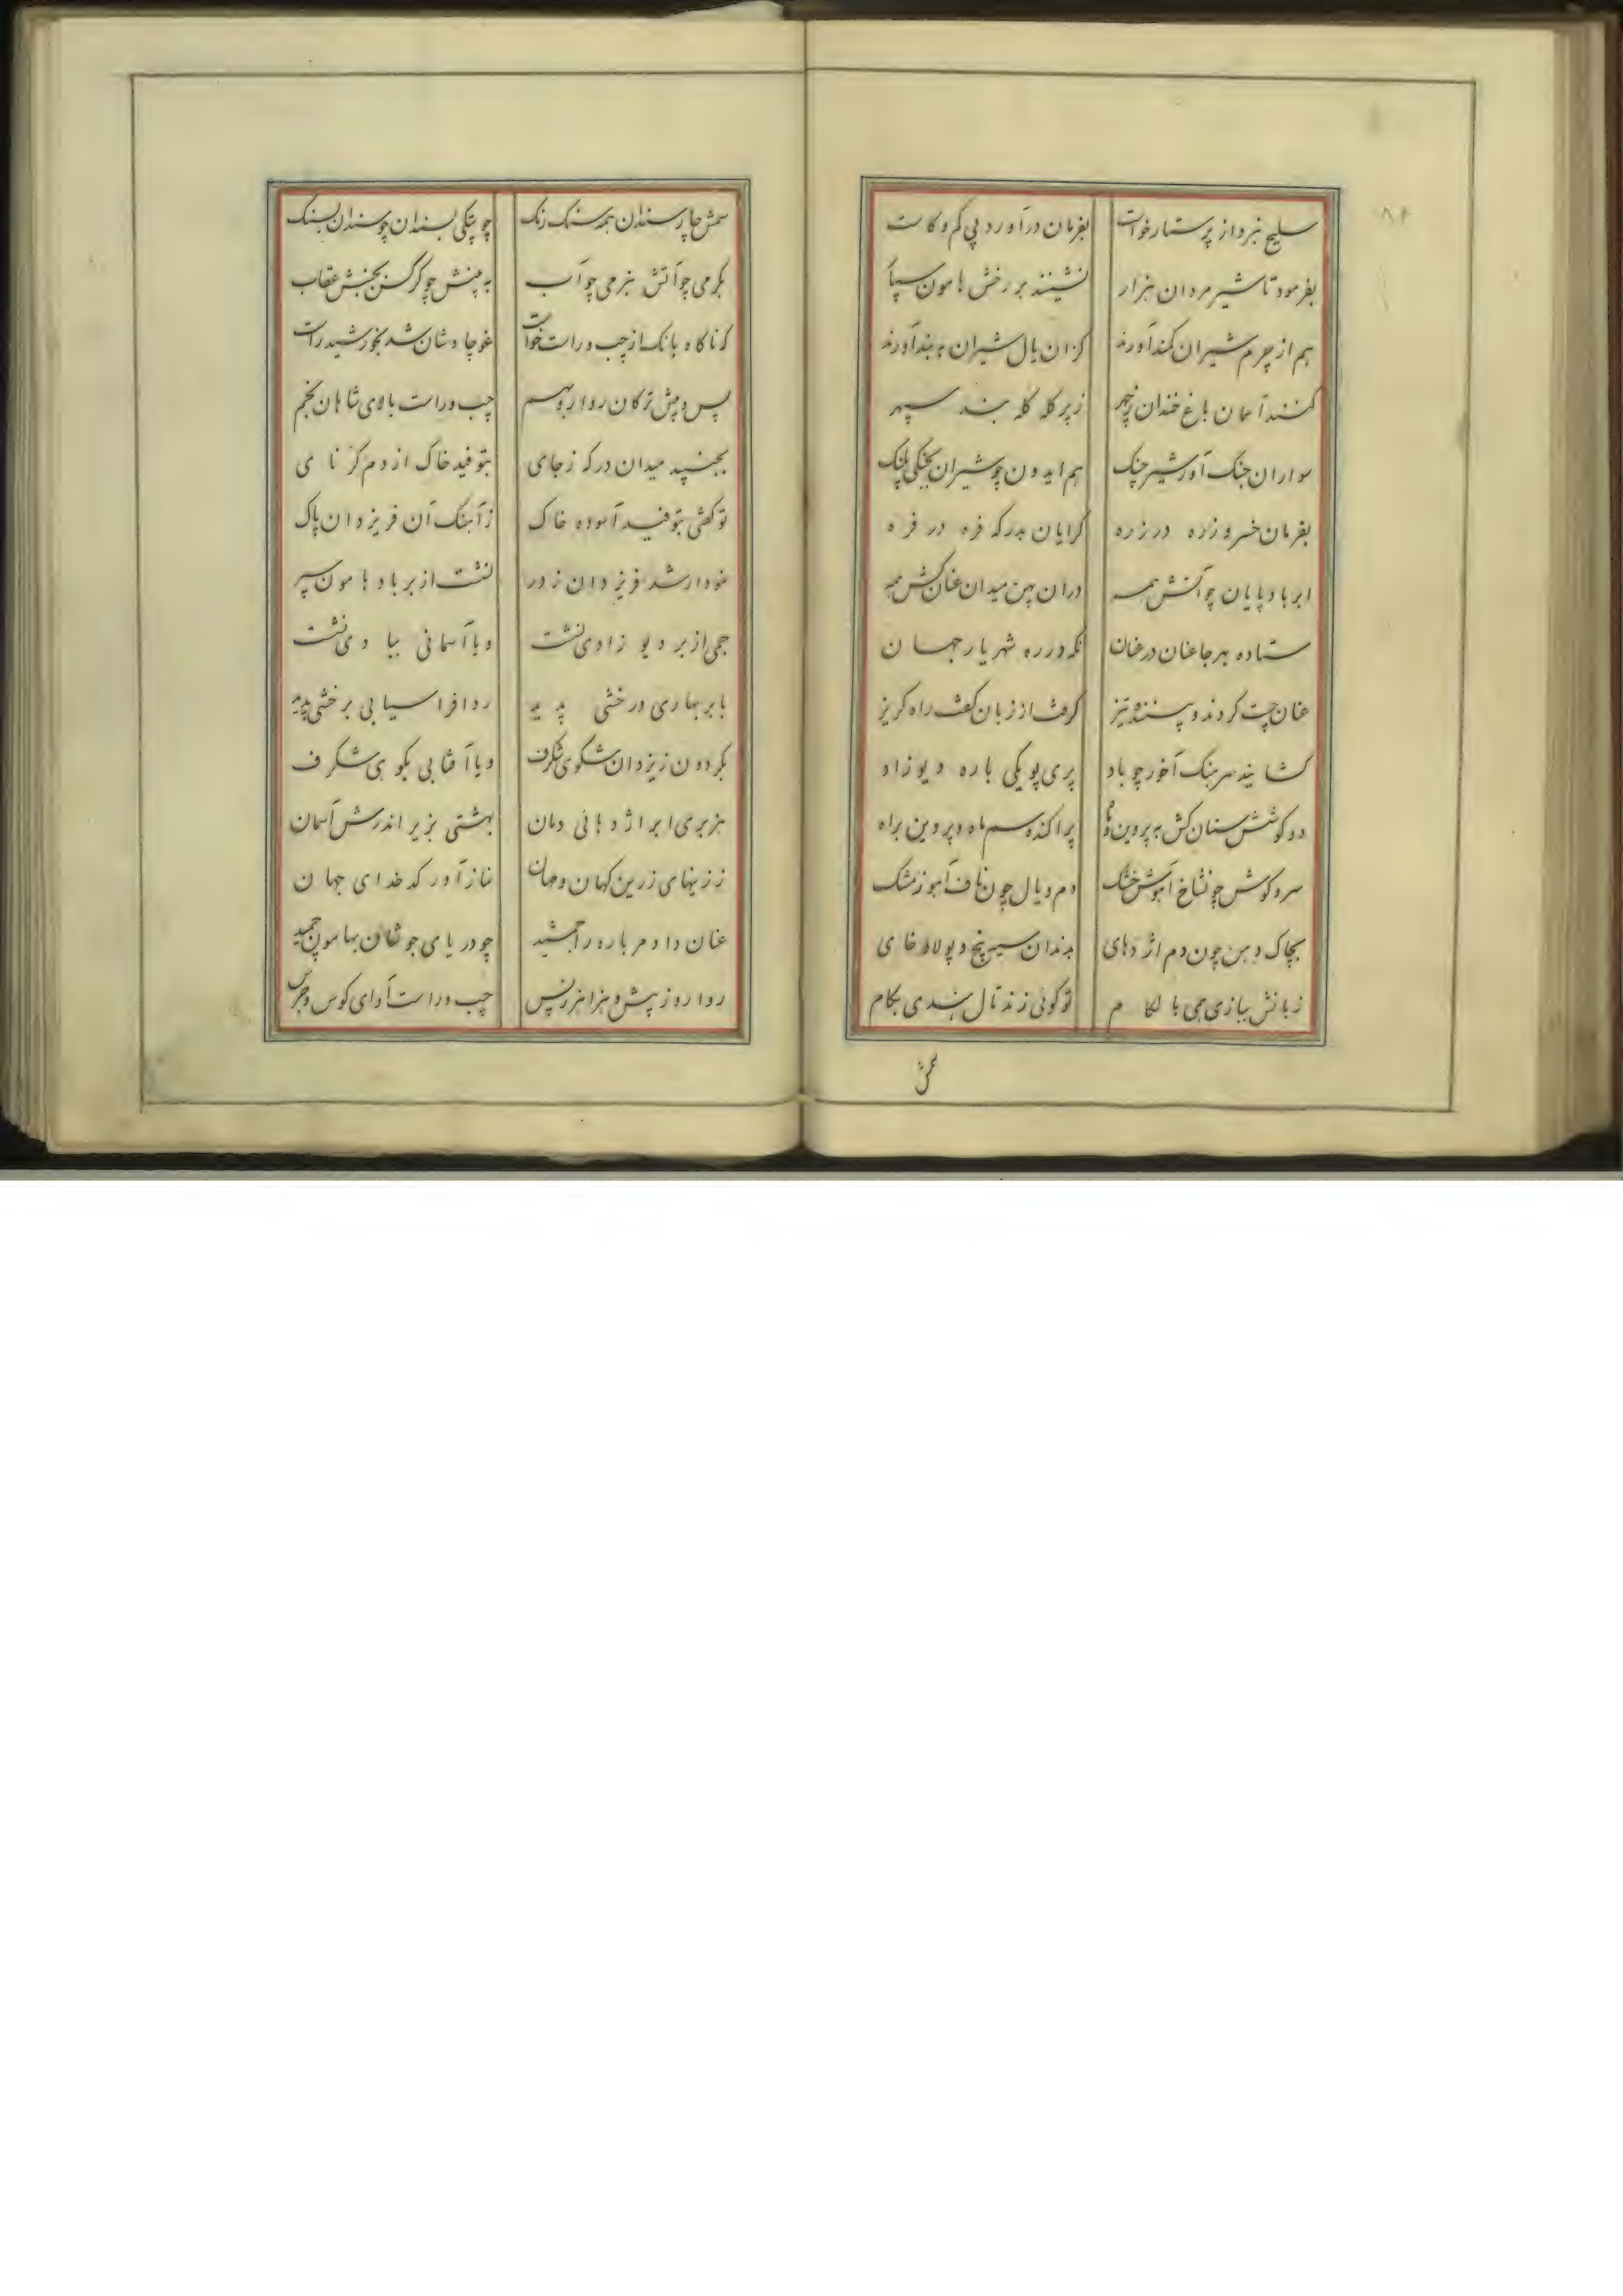 ۸۴
سلیح نبرد از پرستار خواست بفرمان درآورد پی کم و کاست
بفرمود تا شیر مردان هزار نشینند بر رخش هامون سپار
هم از چرم شیران کمند آورند کزان یال شیران به بند آورند
کنند آسمان باغ خندان ز چهر ز پر کله کله بند سپهر
سواران جنک آور شیر چنک هم ایدون چو شیران جنگی پلنک
بفرمان خسرو زره در زره کرایان بدرکه فره در فره
ابر باد پایان چو آتش همه دران پهن میدان عنان کش همه
ستاده بهر جا عنان در عنان نکه در ره شهریار جهان
عنان چست کردند و پسنده تیز کرفت از زبان کفت راه کریز
کشانید سرهنک آخور چو باد پری پویکی باره دیو زاد
دو کوشش سنان کش به پروین و ماه پراکنده سم ماه و پروین براه
سرو کوش چون شاخ آهوش خشک دم و یال چون ناف آهو ز مشک
بچاک دهن چون دم اژدهای بدندان سپر پنج و پولاد خای
زبانش ببازی همی با لکام تو کوئی زند تال هندی بکام
سمش
سمش چار سندان همه سنک رنک چو پتکی بسندان چو سندان بسنک
بکرمی چو آتش بنرمی چو آب به بینش چو کرکس بجنبش عقاب
که ناکاه بانک از چپ و راست خواست غو چاوشان شد بخورشید راست
پس و پیش ترکان روارو بهم چپ و راست بالای شاهان بخم
بجنبید میدان درکه ز جای بتوفید خاک از دم کرنای
تو کفتی بتوفید آسوده خاک ز آهنک آن فر یزدان پاک
نمودار شد فر یزدان ز دور نشست از بر باد هامون سپر
جمی از بر دیو زادی نشست و یا آسمانی ببادی نشست
بابر بهاری درخشی پدید ردافراسیابی برخشی پدید
بکردون ز یزدان شکوی شکرف و یا آفتابی بکوهی شکرف
هزبری ابر اژدهائی دمان بهشتی بزیر اندرش آسمان
ز زینهای زرین کهان و مهان نماز آور کدخدای جهان
عنان داد مر باره را جمشید چو دریای جوشان بهامون چمید
روارو ز پیش و هزاهز ز پس چپ و راست آوای کوس و جرس